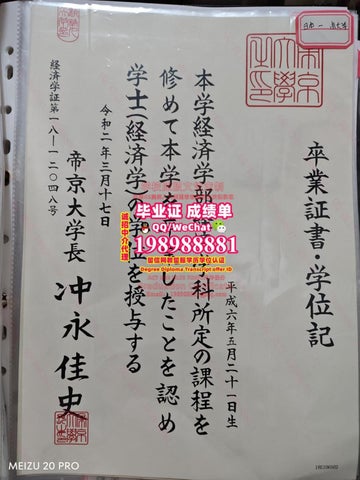 卒業証書・学位記
平成六年五月二十一日生
本学経済学部 学科所定の課程を
修めて本学を したことを認め
学士(経済学)の 位を授与する
令和二年三月十七日
帝京大学長 冲永佳史
経済学証第一八一一二〇四八号
毕业证 成绩单
QQ/WeChat
诚招中介代理
198988881
Degree Diploma Transcript offer ID
MEIZU 20 PRO